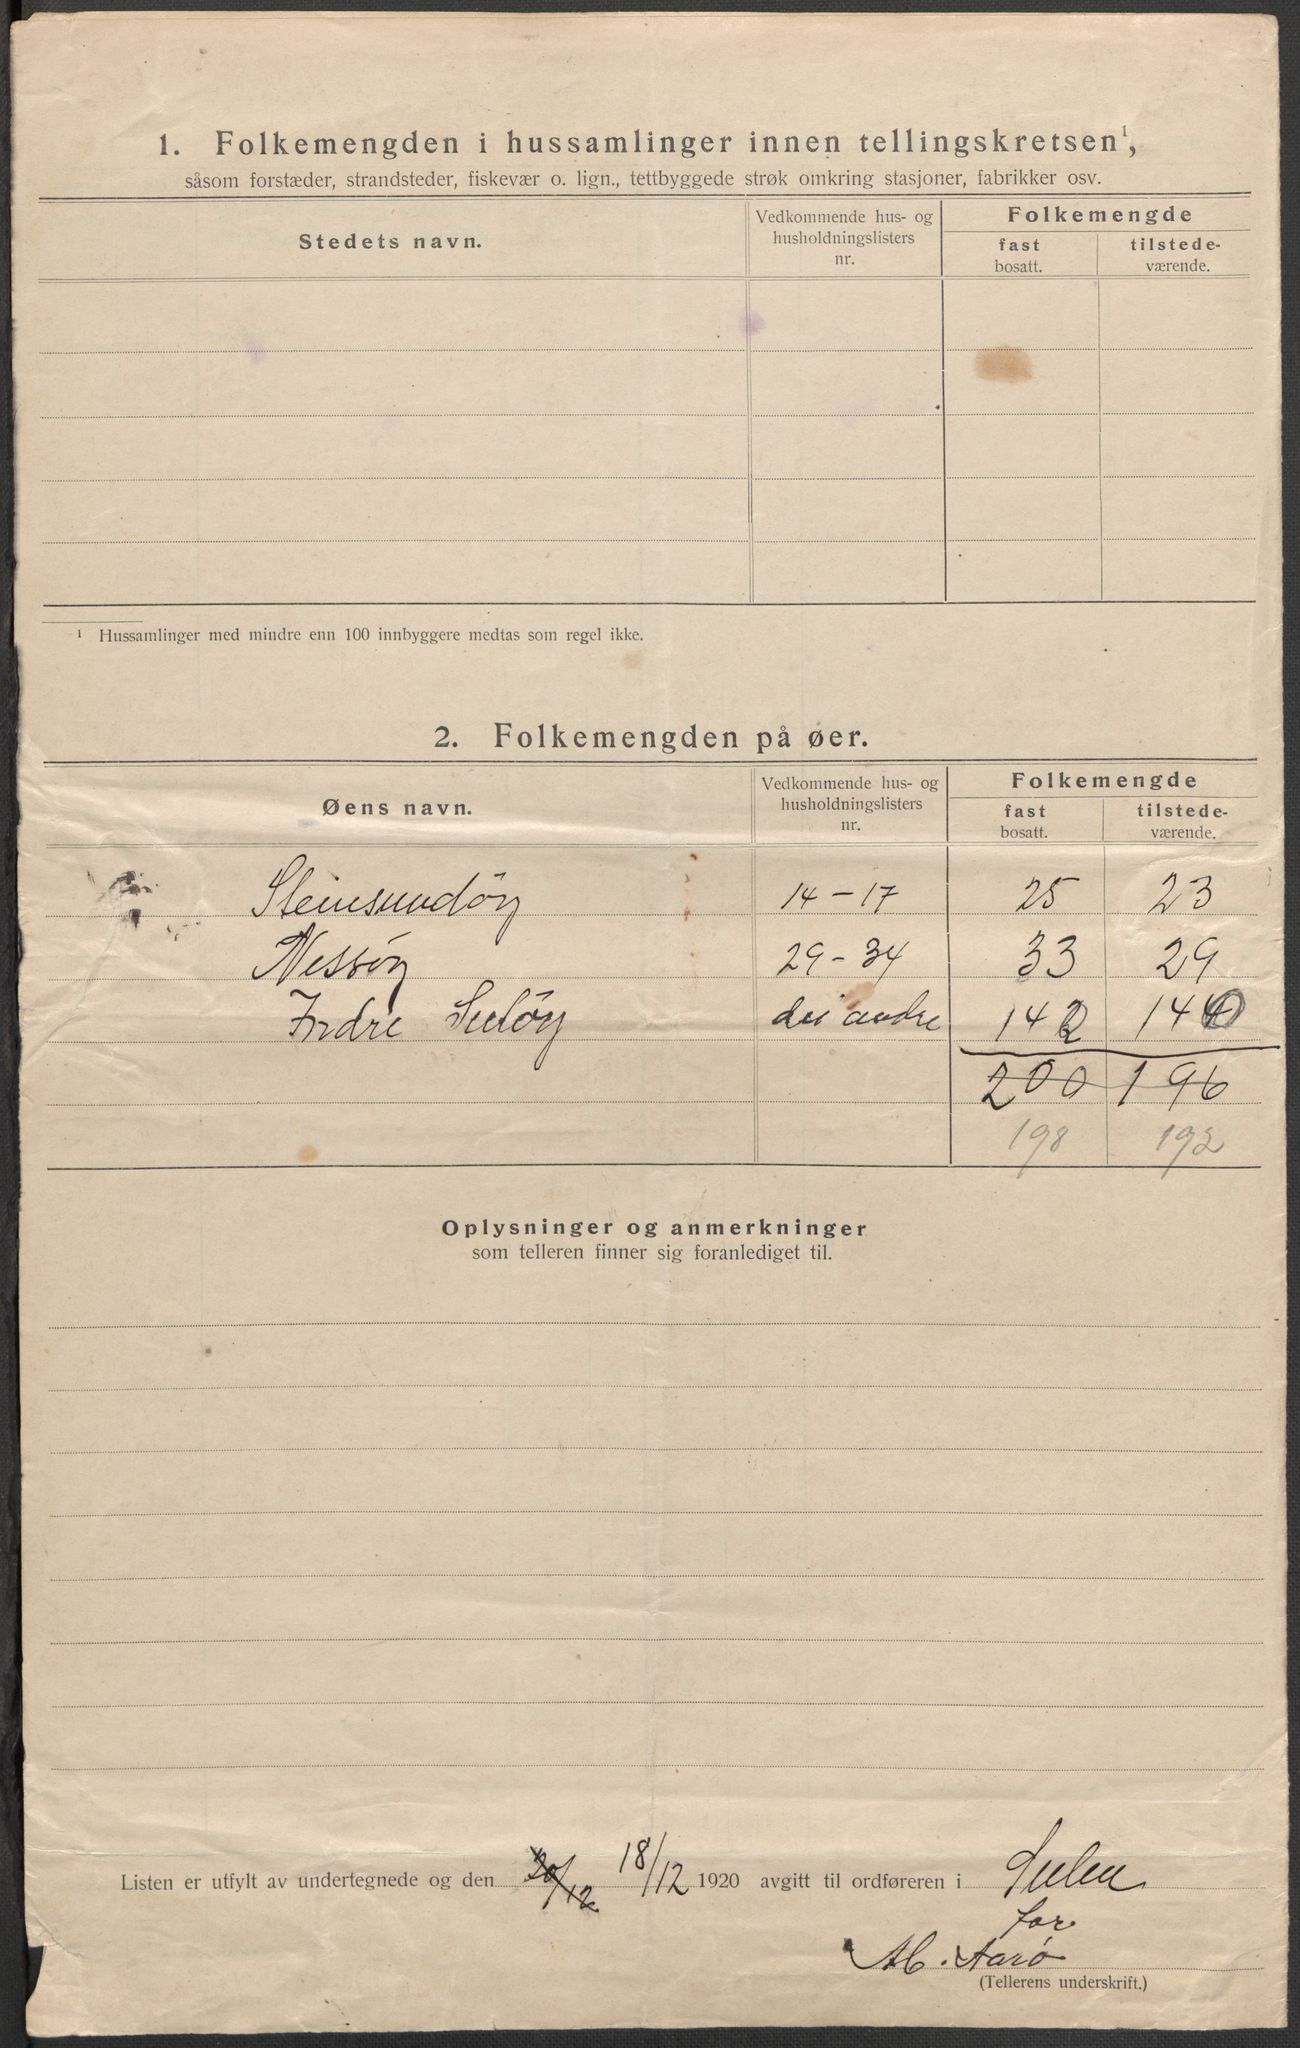 1. Folkemengden i hussamlinger innen tellingskretsen¹,
såsom forstæder, strandsteder, fiskevær o. lign., tettbyggede strøk omkring stasjoner, fabrikker osv.
Stedets navn.
Vedkommende hus- og
husholdningslisters
nr.
Folkemengde
fast
bosatt.
tilstede-
værende.
¹ Hussamlinger med mindre enn 100 innbyggere medtas som regel ikke.
2. Folkemengden på øer.
Øens navn.
Vedkommende hus- og
husholdningslisters
nr.
Folkemengde
fast
bosatt.
tilstede-
værende.
Steinsundöy 14-17 25 23
Nessöy 29-34 33 29
Indre Sulöy dei andre 142 140
200 196
198 192
Oplysninger og anmerkninger
som telleren finner sig foranlediget til.
Listen er utfylt av undertegnede og den 20/12 18/12 1920 avgitt til ordføreren i Sulen
for
Aarö
(Tellerens underskrift.)